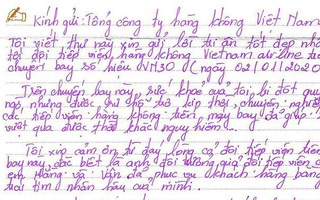 Kính gửi: Tổng công ty hàng không Việt Nam
Tôi viết thư này xin gửi lời tri ân tốt đẹp nhất
tới đội tiếp viên hàng không Vietnam airline trên
chuyến bay số hiệu VN30 (ngày 02/01/2020
Trên chuyến bay này, sức khoẻ của tôi bị đột quỵ
ngờ, nhưng được sự hỗ trợ kịp thời, chuyên nghiệp
các tiếp viên hàng không trên máy bay đã giúp
vượt qua được thời khắc nguy hiểm...
Tôi xin cảm ơn từ đáy lòng cả đội tiếp viên trên
bay này, đặc biệt là anh đội trưởng đội tiếp viên
em Hồng và Vân đã phục vụ khách hàng bằng
trái tim nhân hậu của mình.